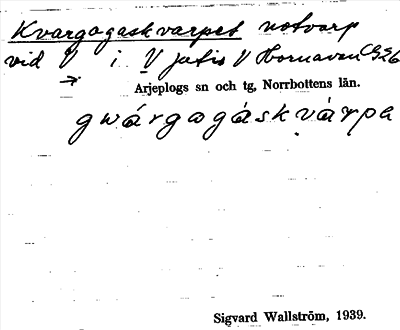 Kvargagaskvarpet notvarp
vid V i V Jutis V Hornavan
→ Arjeplogs sn och tg, Norrbottens län.
gwárgagáskvárpa
Sigvard Wallström, 1939.